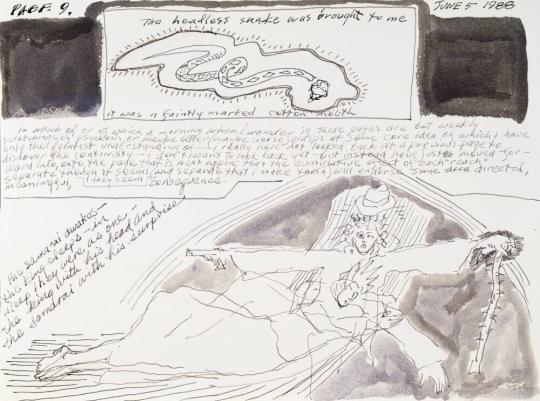 PAGE 9.
JUNE 5 1988
The headless snake was brought to me
it was a faintly marked cotton mouth
in which of or of which a morning when i wonder is these pages are but weekly
scratchings of invasion or made better (made worse) and/or at some core idea of which i have
only the faintest understanding of — i really have not looked back at a previous page to
discover the continuity — i don't want to look back yet but instead have just moved for-
ward into only the page that is next hoping that the cumulative effect of each "reach"
separate though it seems (and separate that i make them) will endorse some directed,
meaningful, (they seem) consequence.
the samarai awakes —
the king sleeps — in
sleep they were as one —
the king with his head and
the samarai with his surprise